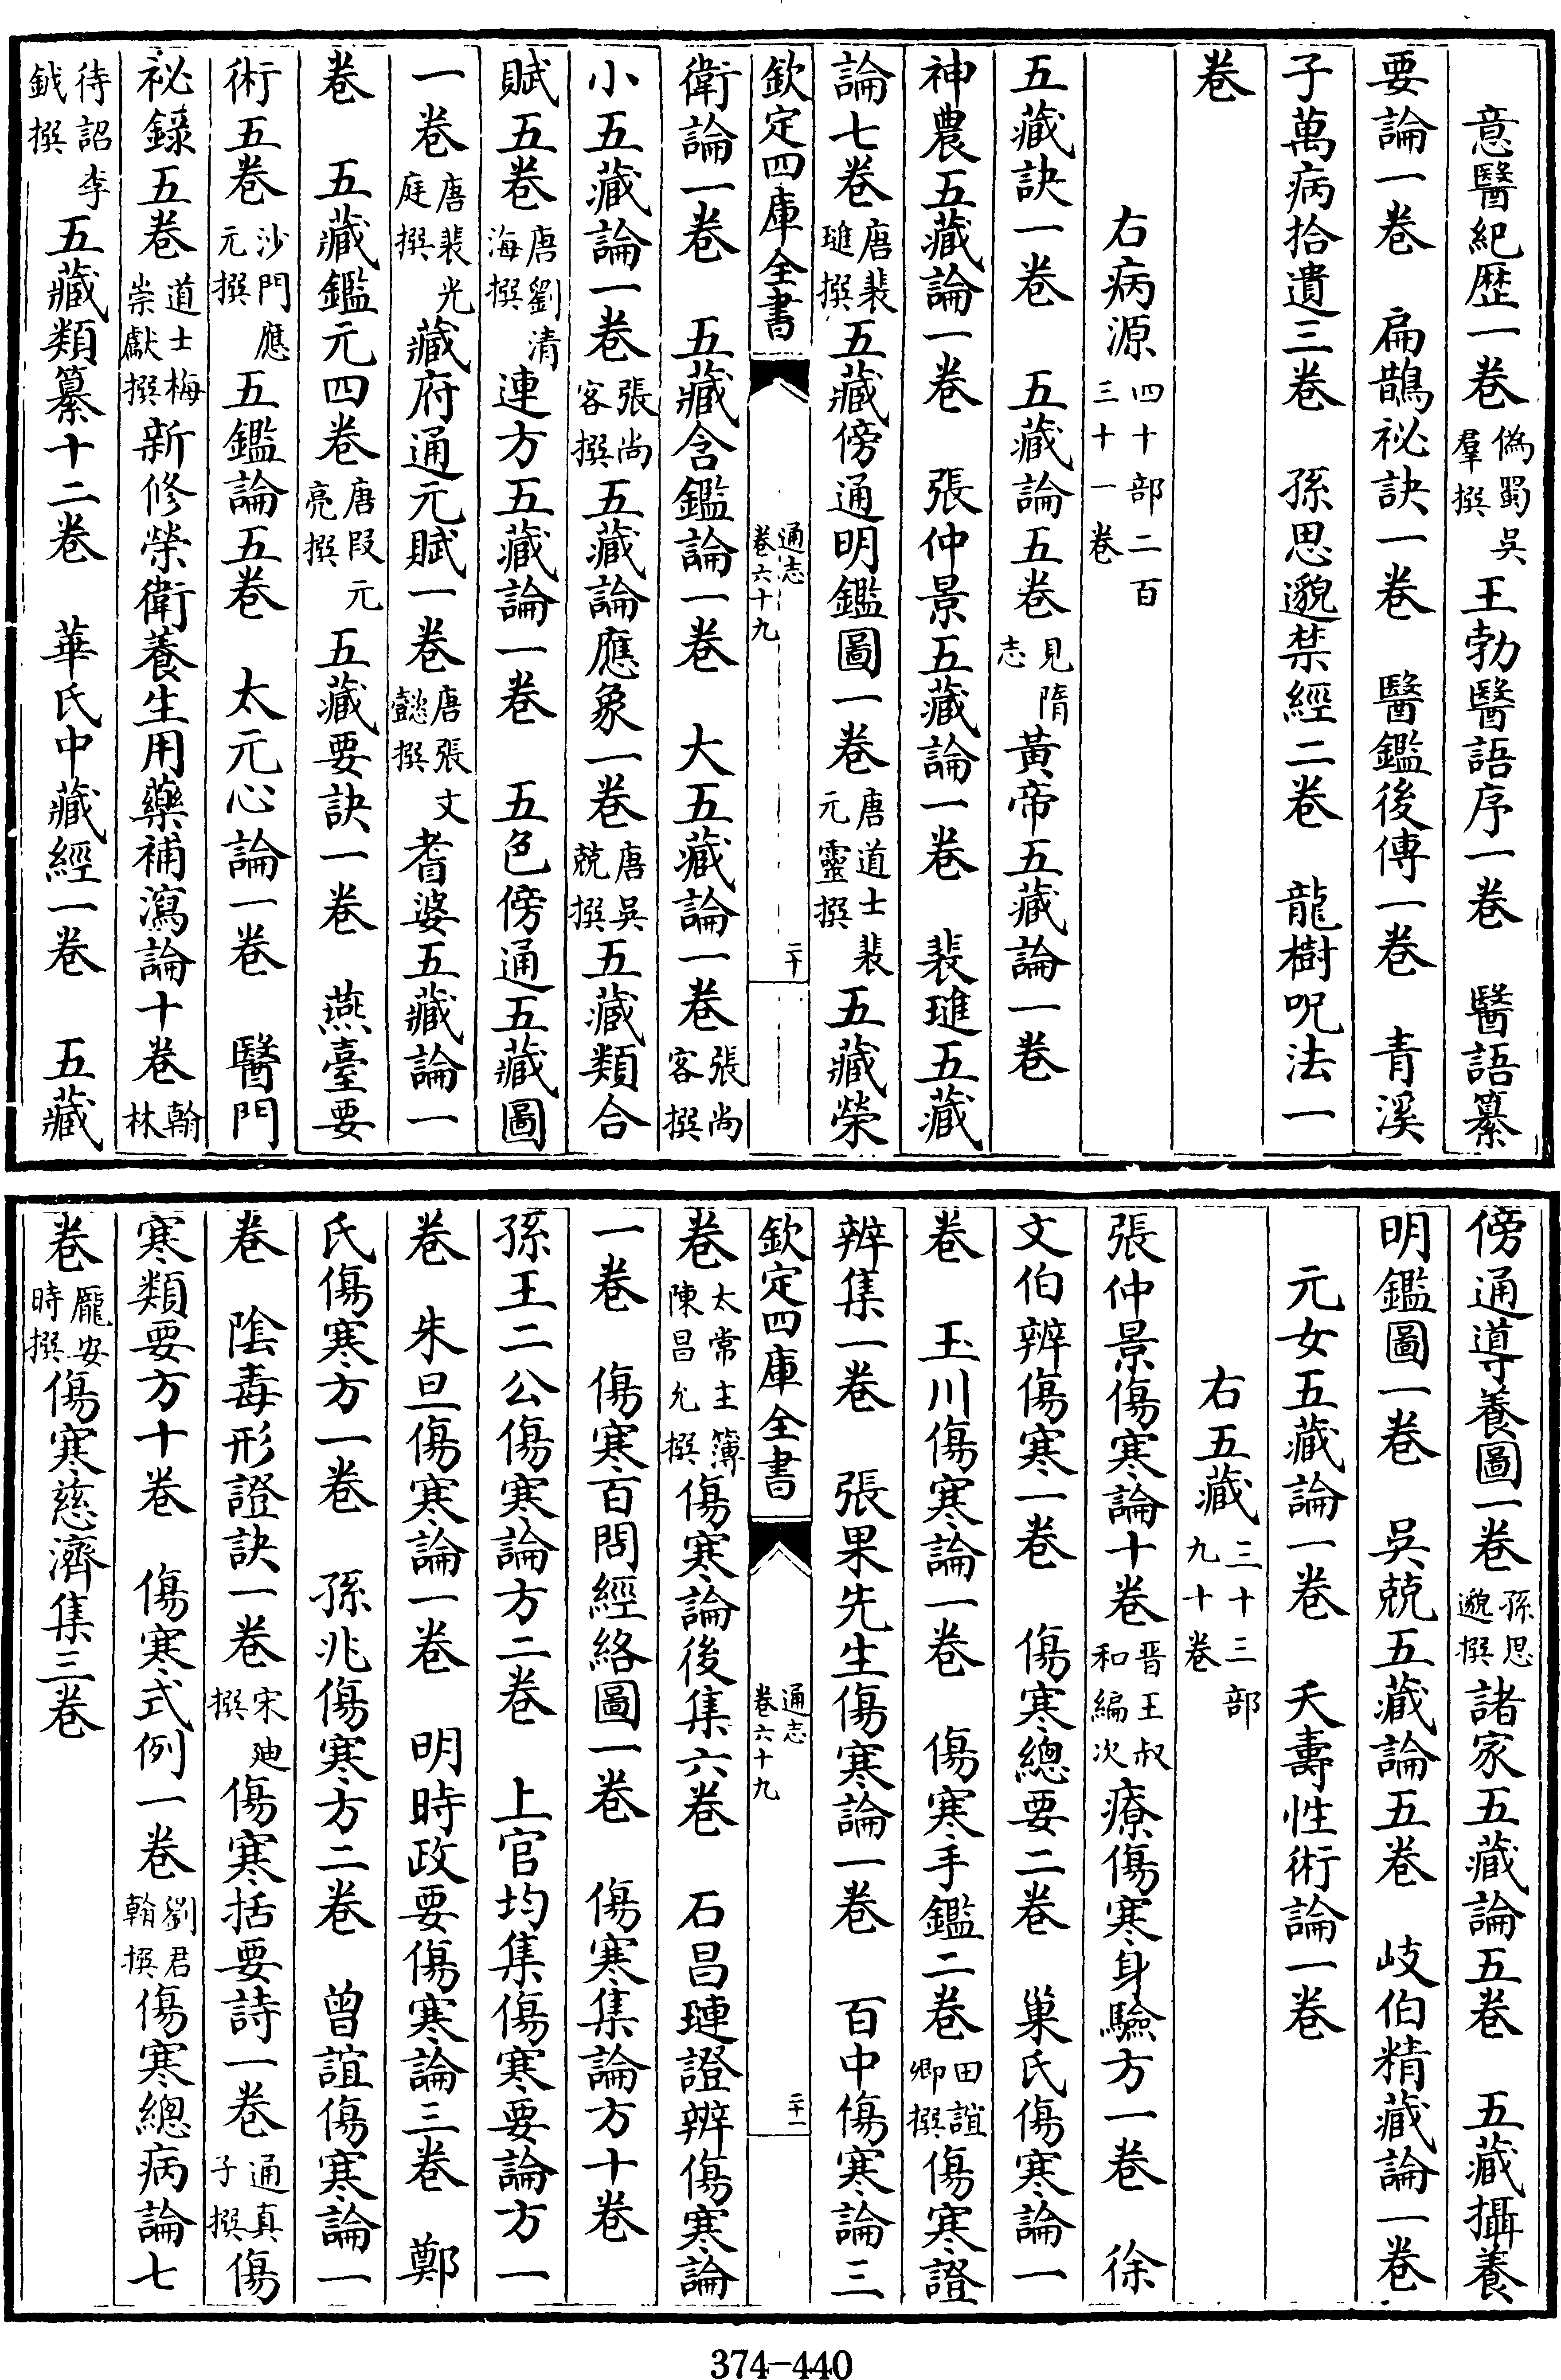 意醫紀歴一卷偽蜀吳羣撰王勃醫語序一卷　醫語纂
要論一卷　扁鵲祕訣一卷　醫鑑後傳一卷　青溪
子萬病拾遺三卷　孫思邈禁經二卷　龍樹呪法一
卷
右病源四十部二百三十一卷
五藏訣一卷　五藏論五卷見隋志黃帝五藏論一卷
神農五藏論一卷　張仲景五藏論一卷　裴璡五藏
論七卷唐裴璡撰五藏傍通明鑑圖一卷唐道士裴元靈撰五藏榮
欽定四庫全書　通志卷六十九　二十
衛論一卷　五藏含鑑論一卷　大五藏論一卷張尚客撰
小五藏論一卷張尚客撰五藏論應象一卷唐吳兢撰五藏類合
賦五卷唐劉清海撰連方五藏論一卷　五色傍通五藏圖
一卷唐裴光庭撰藏府通元賦一卷唐張文懿撰耆婆五藏論一
卷　五藏鑑元四卷唐段元亮撰五藏要訣一卷　燕臺要
術五卷沙門應元撰五鑑論五卷　太元心論一卷　醫門
祕錄五卷道士梅崇獻撰新修榮衛養生用藥補瀉論十卷翰林
待詔李鉞撰五藏類纂十二卷　華氏中藏經一卷　五藏
傍通導養圖一卷孫思邈撰諸家五藏論五卷　五藏攝養
明鑑圖一卷　吳兢五藏論五卷　岐伯精藏論一卷
元女五藏論一卷　夭壽性術論一卷
右五藏三十三部九十卷
張仲景傷寒論十卷晉王叔和編次療傷寒身驗方一卷　徐
文伯辨傷寒一卷　傷寒總要二卷　巢氏傷寒論一
卷　玉川傷寒論一卷　傷寒手鑑二卷田誼卿撰傷寒證
辨集一卷　張果先生傷寒論一卷　百中傷寒論三
欽定四庫全書　通志卷六十九　二十一
卷太常主簿陳昌允撰傷寒論後集六卷　石昌璉證辨傷寒論
一卷　傷寒百問經絡圖一卷　傷寒集論方十卷
孫王二公傷寒論方二卷　上官均集傷寒要論方一
卷　朱旦傷寒論一卷　明時政要傷寒論三卷　鄭
氏傷寒方一卷　孫兆傷寒方二卷　曾誼傷寒論一
卷　陰毒形證訣一卷宋迪撰傷寒括要詩一卷通真子撰傷
寒類要方十卷　傷寒式例一卷劉君翰撰傷寒總病論七
卷龐安時撰傷寒慈濟集三卷
374-440